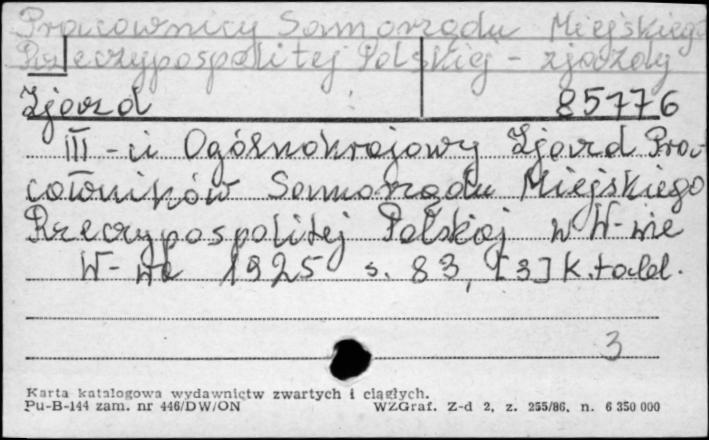 Pracownicy Samorządu Miejskiego
Rzeczypospolitej Polskiej - zjazdy
Zjazd 85776
III-ci Ogólnokrajowy Zjazd Pra-
cowników Samorządu Miejskiego
Rzeczypospolitej Polskiej w W-wie
W-wa 1925 s. 83, [3] k. tabl.
3
Karta katalogowa wydawnictw zwartych i ciągłych.
Pu-B-144 zam. nr 446/DW/ON WZGraf. Z-d 2, z. 255/86, n. 6 350 000